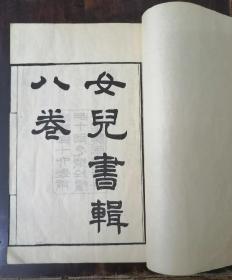 女兒書輯
八卷